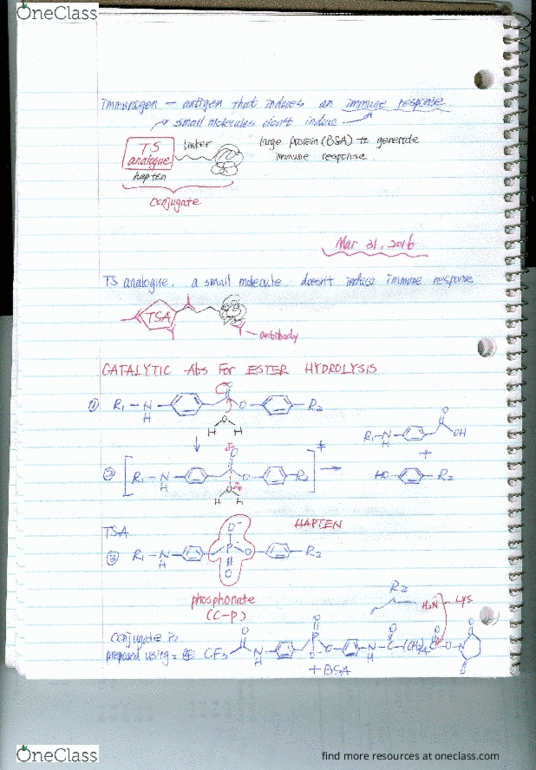 OneClass
Immunogen — antigen that induces an immune response
small molecules don't induce
TS analogue
linker
large protein (BSA) to generate immune response
hapten
conjugate
Mar 31, 2016
TS analogue, a small molecule doesn't induce immune response
TSA
antibody
CATALYTIC Abs FOR ESTER HYDROLYSIS
① R₁ – N H O O R₂
O H H
R₁ – N H O OH
+
② R₁ – N H O O R₂ ‡
δ- δ+ H H
HO R₂
TSA
HAPTEN
③ R₁ – N H O⁻ P O O R₂
phosphonate
(C-P)
R₂
H₂N – Lys
conjugate is
prepared using: CF₃ O N H O P O O N H O C (CH₂)₄ C O O N O O
+ BSA
OneClass
find more resources at oneclass.com